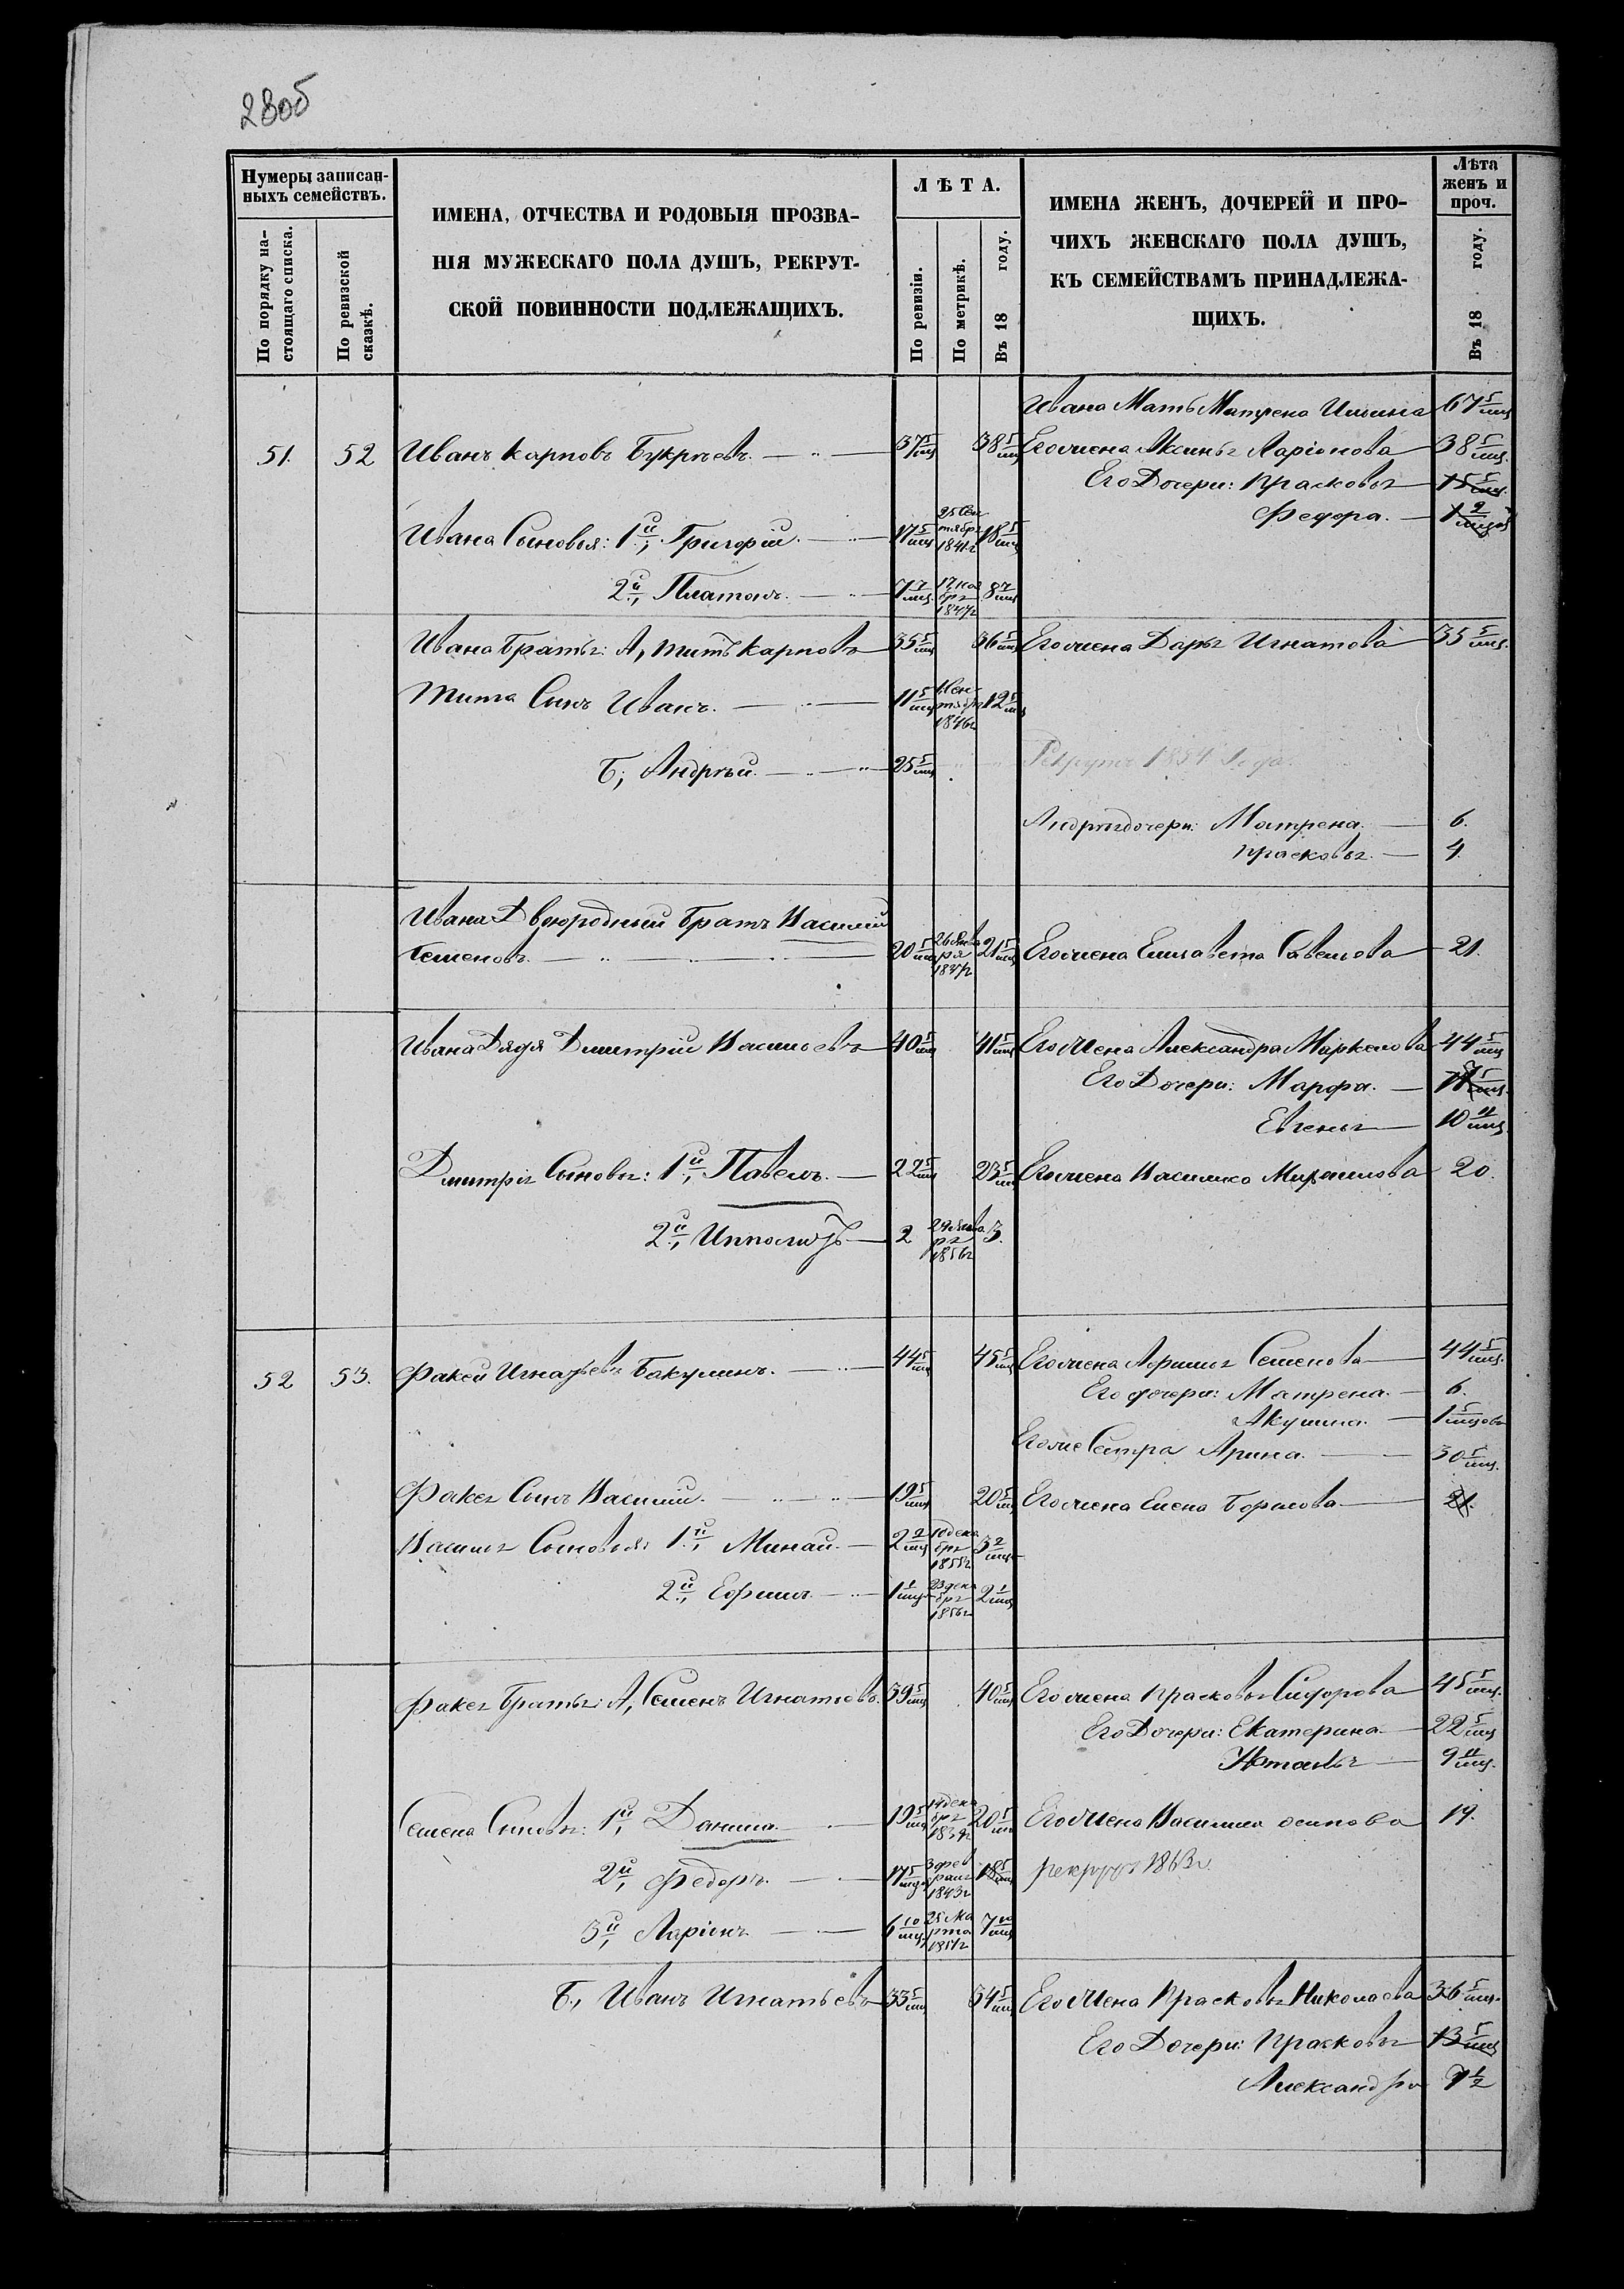 280об
Нумеры записан-
ныхъ семействъ.
По порядку на-
стоящаго списка.
По ревизской
сказкѣ.
ИМЕНА, ОТЧЕСТВА И РОДОВЫЯ ПРОЗВА-
НІЯ МУЖЕСКАГО ПОЛА ДУШЪ, РЕКРУТ-
СКОЙ ПОВИННОСТИ ПОДЛЕЖАЩИХЪ.
ЛѢТА.
По ревизіи.
По метрикѣ.
Въ 18 году.
ИМЕНА ЖЕНЪ, ДОЧЕРЕЙ И ПРО-
ЧИХЪ ЖЕНСКАГО ПОЛА ДУШЪ,
КЪ СЕМЕЙСТВАМЪ ПРИНАДЛЕЖА-
ЩИХЪ.
Лѣта
женъ и
проч.
Въ 18 году.
Ивана Мать Матрена 67 5/мц
51. 52 Иванъ Карповъ Букрѣевъ. 37 5/мц 38 5/мц Его жена Аксинья Ларіонова 38 5/мц.
Его Дочери: Прасковья 15 5/мц.
Федора. 1 2/мцов
Ивана Сыновья: 1й, Григорій. 17 5/мц 25 Сен
тября
1841г 18 5/мц
2й, Платонъ. 7 7/мц. 17 ноя
бря
1847г 8 7/мц
Ивана Братья: А, Титъ Карповъ 35 5/мц 36 5/мц Его жена Дарья Игнатова 35 5/мц.
Тита Сынъ Иванъ. 11 5/мц Сен
тября
1846г 12 5/мц
Б, Андрѣй. 25 5/мц Рекрутъ 1854 Года.
Андрея дочери: Матрена. 6.
Прасковья. 4.
Ивана Двоюродный Братъ Василій
Семеновъ. 20 5/мц 26 Янва
ря
1837г 21 5/мц Его жена Елизавета Савельова 21.
Ивана Дядя Дмитрій Васильевъ 40 5/мц 41 5/мц Его жена Александра Маркелова 44 5/мц
Его Дочери: Марфа. 5/мц.
Евгенья 10 11/мц.
Дмитрія Сыновья: 1й, Павелъ. 22 5/мц 23 5/мц Его жена Василиса Михаилова 20.
2й, Ипполитъ 2 29 Янва
ря
1856г 3.
52 53. Факей Игнатьевъ Бакулинъ. 44 5/мц 45 5/мц Его жена Афимья Семенова 44 5/мц.
Его дочери: Матрена. 6.
Акулина. 1 5/мцовъ
Его же Сестра Арина. 30 5/мц.
Факея Сынъ Василій. 19 5/мц 20 5/мц Его жена Елена Борисова 21.
Василья Сыновья: 1й, Минай. 2 2/мц 10 дека
бря
1855г 3 2/мц
2й, Ефимъ 1 1/мц 23 дека
бря
1856г 2 1/мц
Факея Братья: А, Семенъ Игнатьевъ 39 5/мц 40 5/мц Его жена Прасковья Сидорова 45 5/мц.
Его Дочери: Екатерина. 22 5/мц
Наталья 9 11/мц.
Семена Сыновья: 1й, Данила. 19 5/мц 14 дека
бря
1839г 20 5/мц Его жена Василиса осипова 19.
2й, Федоръ. 17 5/мцовъ 3 фев
раля
1843г 18 5/мц рекрутъ 1863г.
3й, Ларіонъ 6 10/мц. 25 Ма
рта
1851г 7 10/мц
Б, Иванъ Игнатьевъ 33 5/мц 34 5/мц Его жена Прасковья Николаева 36 5/мц.
Его Дочери: Прасковья 13 5/мц
Александра 7 1/2